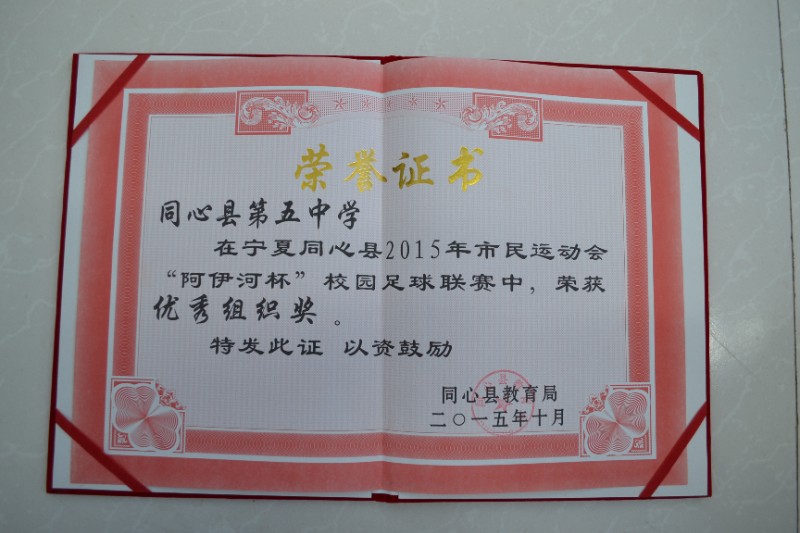 荣誉证书
同心县第五中学
在宁夏同心县2015年市民运动会
“阿伊河杯”校园足球联赛中，荣获
优秀组织奖。
特发此证 以资鼓励
同心县教育局
二〇一五年十月